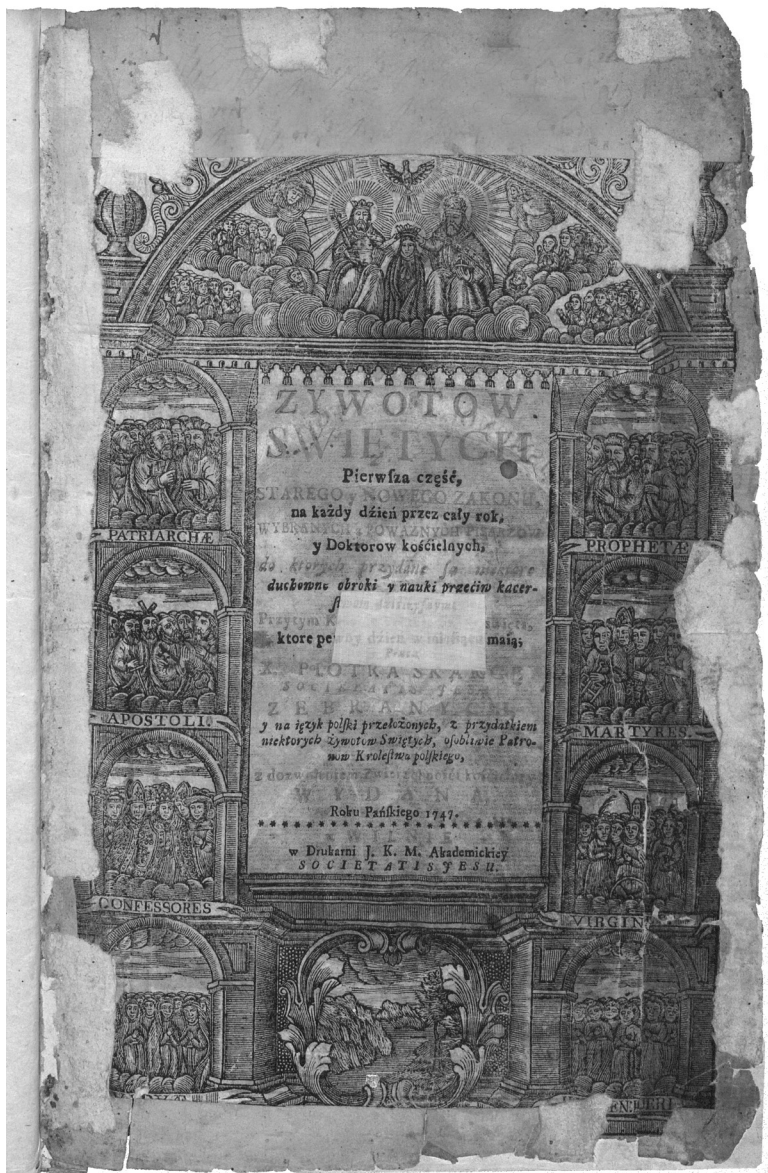 ZYWOTOW
SWIĘTYCH
Pierwſza część,
STAREGO y NOWEGO ZAKONU,
na każdy dźień przez cały rok,
WYBRANYCH z POWAŻNYCH PISARZOW
y Doktorow kośćielnych,
do ktorych przydane ſą niektore
duchowne obroki y nauki przećiw kacer-
Przytym
ktore dzień maią;
Przez
X. PIOTRA SKARGĘ
SOCIETATIS JESU
ZEBRANYCH
y na ięzyk polſki przełożonych, z przydatkiem
niektorych żywotow Swiętych, oſobliwie Patro-
now Kroleſtwa polſkiego,
z dozwoleniem
WYDANA
Roku Pańſkiego 1747.
w Drukarni J. K. M. Akademickiey
SOCIETATIS JESU.
PATRIARCHÆ
PROPHETÆ
APOSTOLI.
MARTYRES.
CONFESSORES
VIRGIN